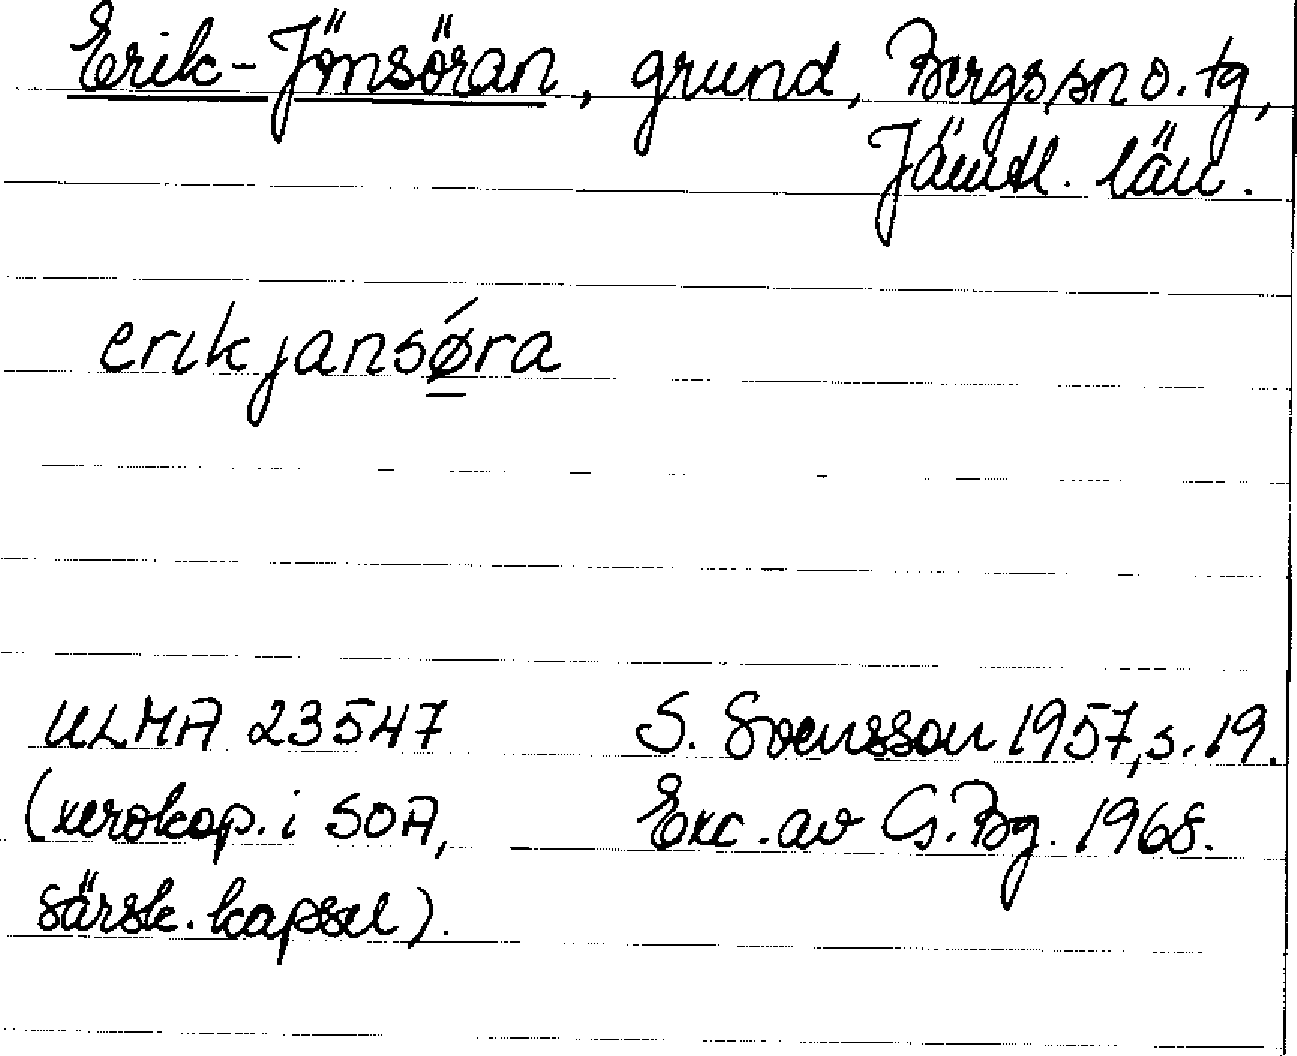 Erik-Jönsöran, grund, Bergs sn o. tg,
Jämtl. län.
erikjansǿ̲ra
ULMA 23547 S. Svensson 1957, s. 19.
(xerokop. i SOA, Exc. av G. Bg. 1968.
särsk. kapsel).